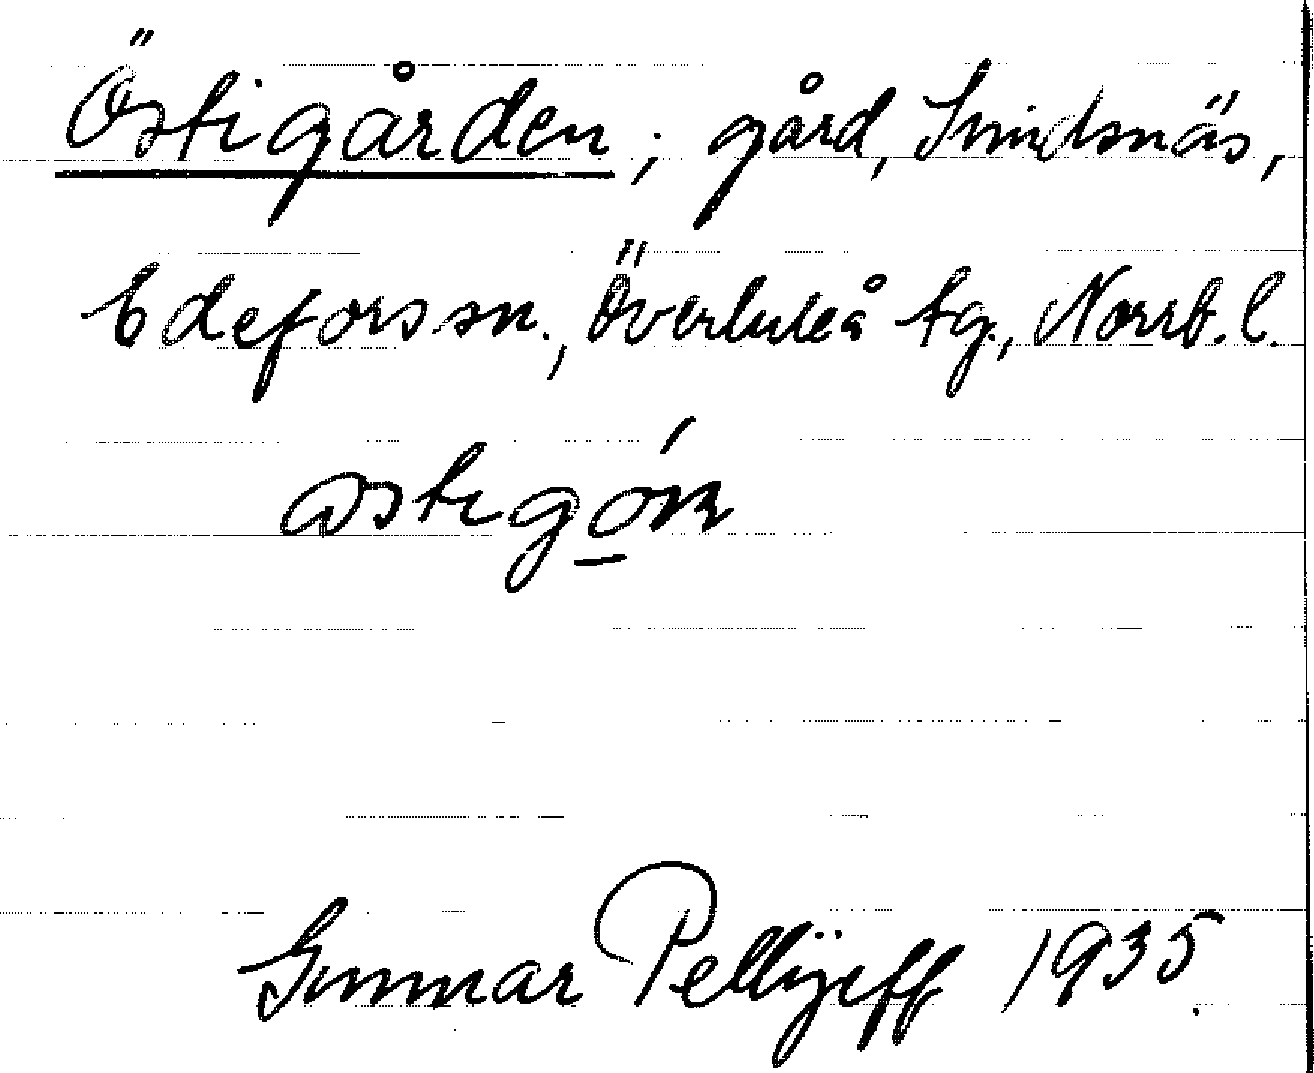 Östigården; gård, Sundsnäs,
Edefors sn., Överluleå tg., Norrb. l.
Gunnar Pellijeff 1935.